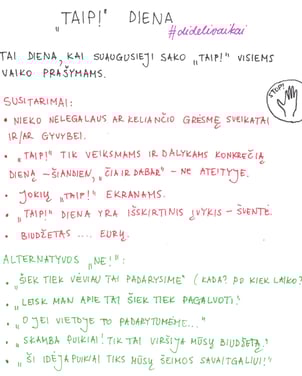 „TAIP!" DIENA
#dideliovaikai
TAI DIENA, KAI SUAUGUSIEJI SAKO „TAIP!" VISIEMS
VAIKO PRAŠYMAMS.
SUSITARIMAI:
STOP!
• NIEKO NELEGALAUS AR KELIANČIO GRĖSMĘ SVEIKATAI
IR/AR GYVYBEI.
• „TAIP!" TIK VEIKSMAMS IR DALYKAMS KONKREČIĄ
DIENĄ – ŠIANDIEN, „ČIA IR DABAR" – NE ATEITYJE.
• JOKIŲ „TAIP!" EKRANAMS.
• „TAIP!" DIENA YRA IŠSKIRTINIS ĮVYKIS – ŠVENTĖ.
• BIUDŽETAS .... EURŲ.
ALTERNATYVOS „NE!":
• „ŠIEK TIEK VĖLIAU TAI PADARYSIME" (KADA? PO KIEK LAIKO?
• „LEISK MAN APIE TAI ŠIEK TIEK PAGALVOTI."
• „O JEI VIETOJE TO PADARYTUMĖME..."
• „SKAMBA PUIKIAI! TIK TAI VIRŠIJA MŪSŲ BIUDŽETĄ."
• „ŠI IDĖJA PUIKIAI TIKS MŪSŲ ŠEIMOS SAVAITGALIUI!"